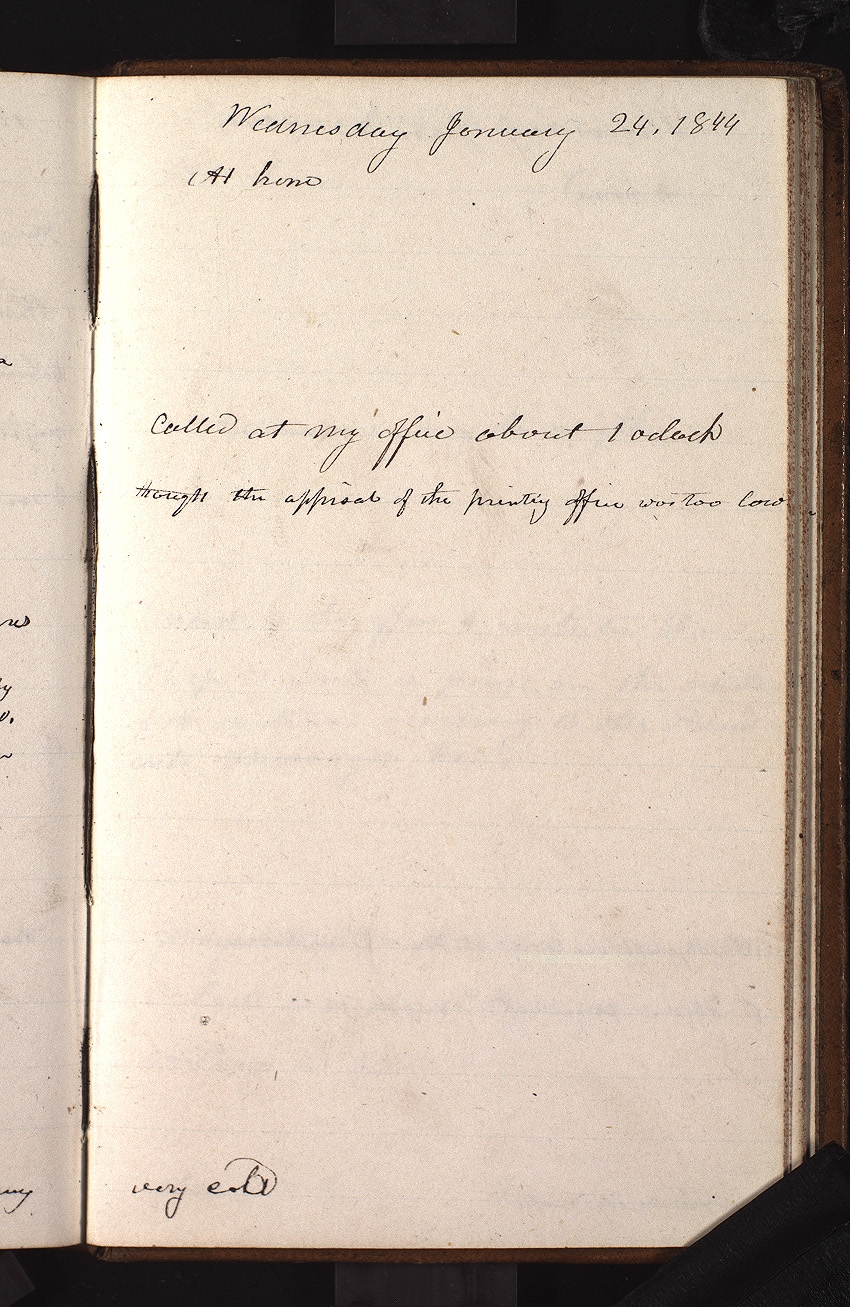 Wednesday January 24, 1844
At home
called at my office about 1 oclock
thought the apprisal of the printing office was too low
very cold